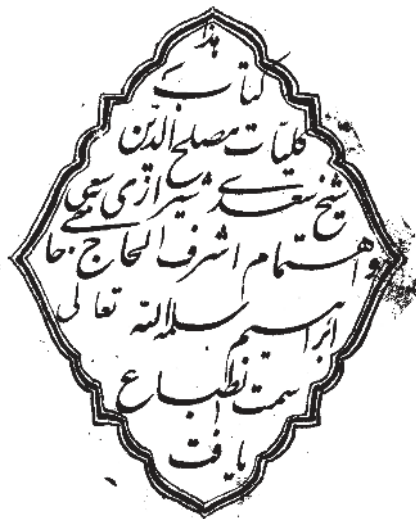 هذا
کتاب
کلیات مصلح الدین
شیخ سعدی شیرازی بسعی
و اهتمام اشرف الحاج حاجی
ابراهیم سلمه الله تعالی
سمت انطباع
یافت